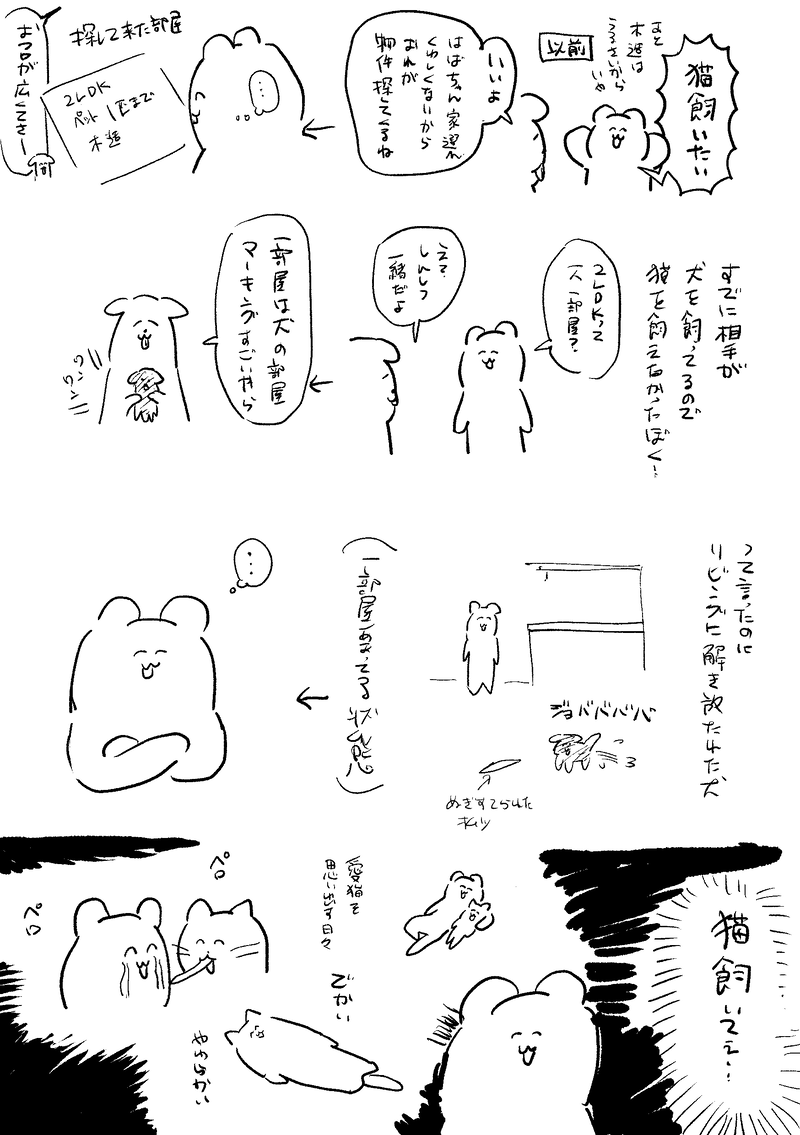 猫飼いたい
あと
木造は
うるさいから
いや
以前
いいよ
はばちゃん家選び
くわしくないから
おれが
物件探してくるね
…
探して来た部屋
2LDK
ペット1匹まで
木造
おフロが広くてさー
すでに相手が
犬を飼ってるので
猫を飼えなかったぼく…
2LDKって
一人一部屋？
え？
しんしつ
一緒だよ
一部屋は犬の部屋
マーキングすごいから
ワンワン
って言ったのに
リビングに解き放たれた犬
ジョバババババ
ぬぎすてられた
オムツ
（一部屋あまってる状態）
…
猫飼いてえ…
愛猫を
思い出す日々
ペロ
ペロ
でかい
やわらかい